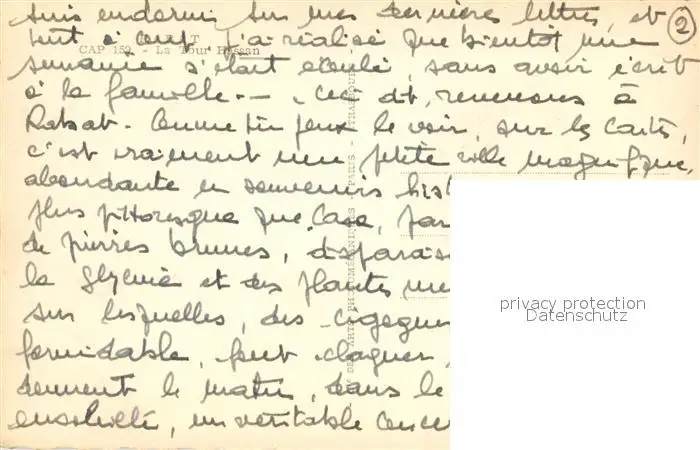 suis endormi sur mes dernières lettres, et
tout à coup j'ai réalisé que bientôt une
CAP 159. - La Tour Hassan
semaine s'était écoulée, sans avoir écrit
à la famille -- Ceci dit, revenons à
Rabat. Comme tu peux le voir, sur les cartes,
c'est vraiment une petite ville magnifique,
abondante en souvenirs his
plus pittoresque que Casa, par
de pierres brunes, disparais
la glycine et des plantes
sur lesquelles, des cigognes
formidable, font claquer
donnent le matin, dans le
ensoleillé, un véritable conce
②
privacy protection
Datenschutz